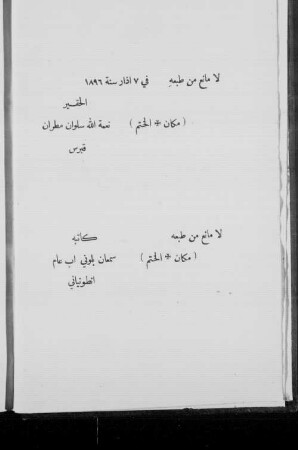 لا مانع من طبعهِ في ٧ اذار سنة ١٨٩٦
الحقير
( مكان * الختم ) نعمة الله سلوان مطران
قبرس
لا مانع من طبعه كاتبه
( مكان * الختم ) سمعان بلوني اب عام
انطونياني